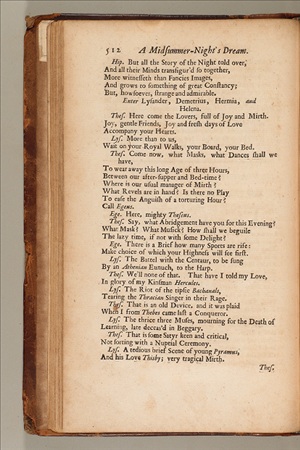 512 A Midsummer-Night's Dream.
Hip. But all the Story of the Night told over,
And all their Minds transfigur'd so together,
More witnesseth than Fancies Images,
And grows to something of great Constancy;
But, howsoever, strange and admirable.
Enter Lysander, Demetrius, Hermia, and
Helena.
Thes. Here come the Lovers, full of Joy and Mirth.
Joy, gentle Friends, Joy and fresh days of Love
Accompany your Hearts.
Lys. More than to us,
Wait on your Royal Walks, your Board, your Bed.
Thes. Come now, what Masks, what Dances shall we
have,
To wear away this long Age of three Hours,
Between our after-supper and Bed-time?
Where is our usual manager of Mirth?
What Revels are in hand? Is there no Play
To ease the Anguish of a torturing Hour?
Call Egeus.
Ege. Here, mighty Theseus.
Thes. Say, what Abridgement have you for this Evening?
What Mask? What Musick? How shall we beguile
The lazy time, if not with some Delight?
Ege. There is a Brief how many Sports are rife:
Make choice of which your Highness will see first.
Lys. The Battel with the Centaur, to be sung
By an Athenian Eunuch, to the Harp.
Thes. We'll none of that. That have I told my Love,
In glory of my Kinsman Hercules.
Lys. The Riot of the tipsie Bachanals,
Tearing the Thracian Singer in their Rage.
Thes. That is an old Device, and it was plaid
When I from Thebes came last a Conqueror.
Lys. The thrice three Muses, mourning for the Death of
Learning, late deceas'd in Beggary.
Thes. That is some Satyr keen and critical,
Not sorting with a Nuptial Ceremony.
Lys. A tedious brief Scene of young Pyramus,
And his Love Thisby; very tragical Mirth.
Thes.